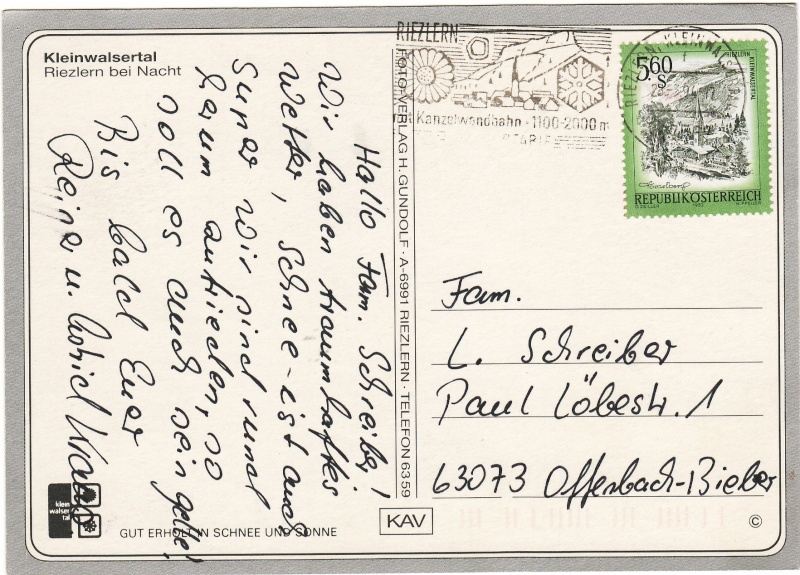 Kleinwalsertal
Riezlern bei Nacht
Hallo Fam. Schreiber!
Wir haben traumhaftes
Wetter, Schnee - ist auch
Super wir sind rund
herum zufrieden, so
soll es auch sein gelle!
Bis bald Euer
Reine u. Krauss
FOTO-VERLAG H. GUNDOLF · A-6991 RIEZLERN · TELEFON 6359
RIEZLERN
Kanzelwandbahn - 1100-2000 m
RIEZLERN KLEINWALS
5,60
S
RIEZLERN
KLEINWALSERTAL
REPUBLIK ÖSTERREICH
Fam.
L. Schreiber
Paul Löbestr. 1
63073 Offenbach-Bieber
klein
walser
tal
GUT ERHOLT IN SCHNEE UND SONNE
KAV
©